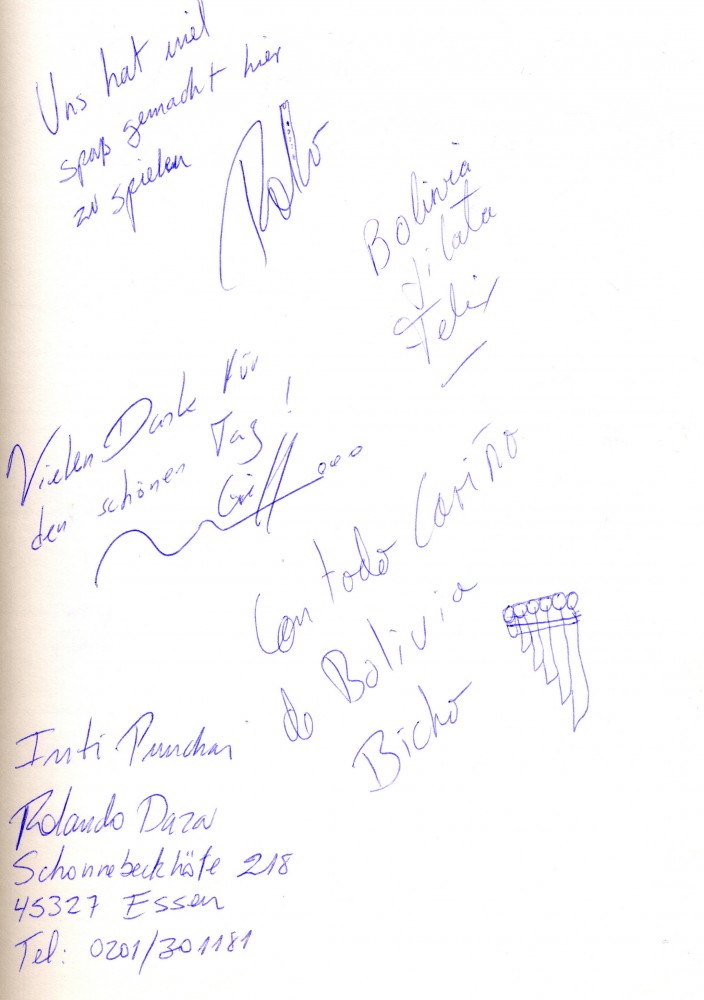 Uns hat viel
spaß gemacht hier
zu spielen
Rollo
Bolivia
Jilata
Felix
Vielen Dank für
den schönen Tag!
Con todo Cariño
de Bolivia
Bicho
Inti Punchai
Rolando Daza
Schonnebeckhöfe 218
45327 Essen
Tel: 0201/301181